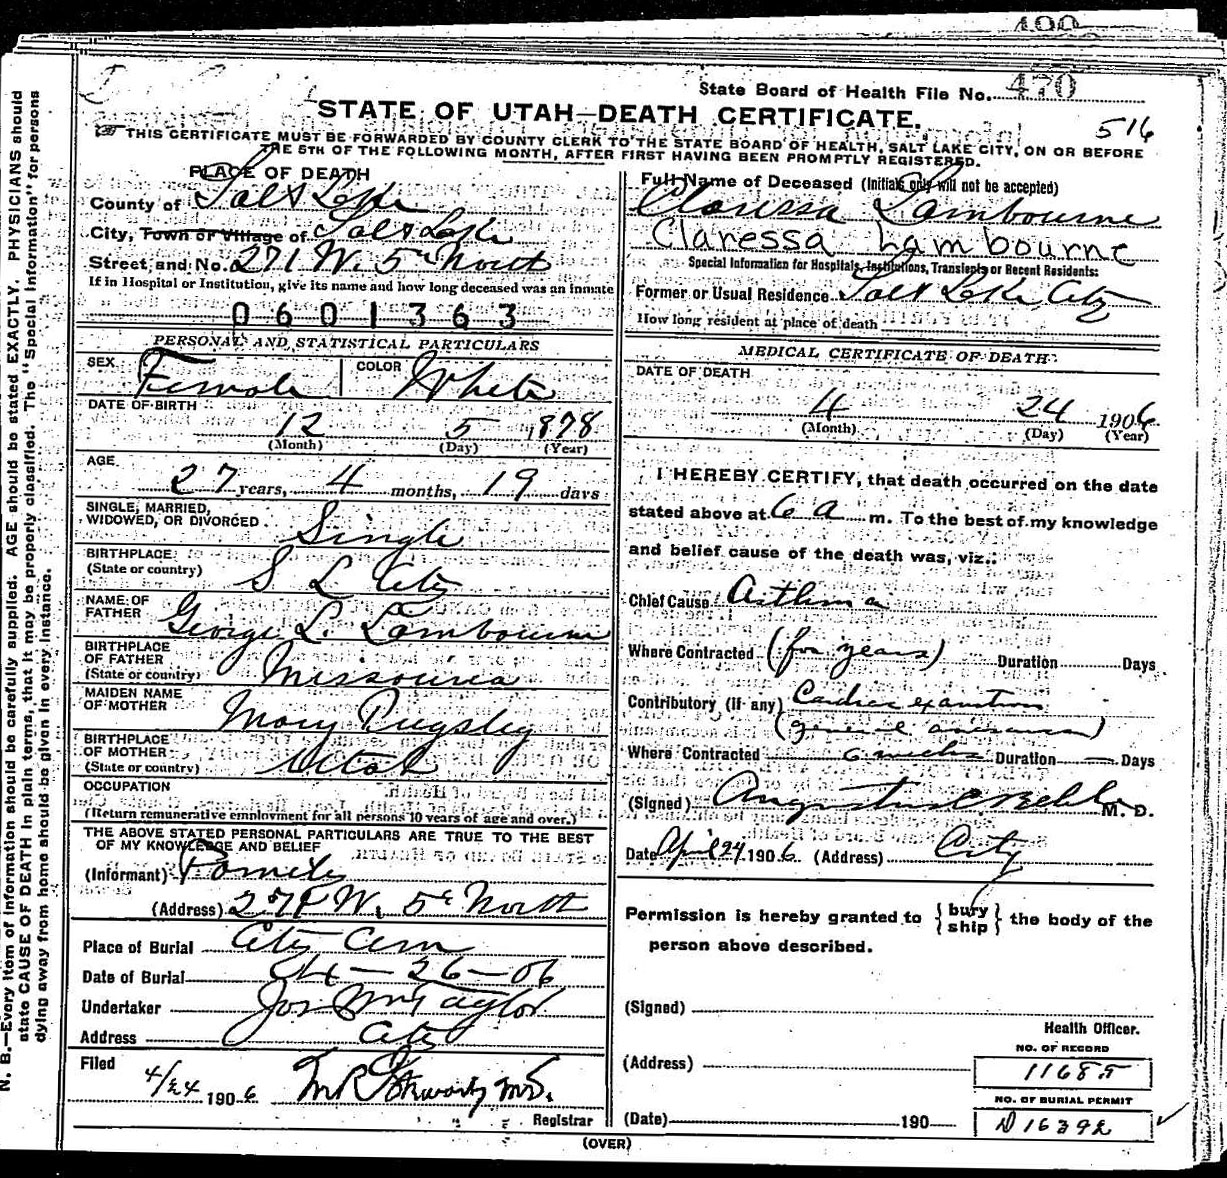 490
State Board of Health File No. 470
STATE OF UTAH—DEATH CERTIFICATE.
516
THIS CERTIFICATE MUST BE FORWARDED BY COUNTY CLERK TO THE STATE BOARD OF HEALTH, SALT LAKE CITY, ON OR BEFORE
THE 5TH OF THE FOLLOWING MONTH, AFTER FIRST HAVING BEEN PROMPTLY REGISTERED.
PLACE OF DEATH
County of Salt Lake
City, Town or Village of Salt Lake
Street and No. 271 W. 5th North
If in Hospital or Institution, give its name and how long deceased was an inmate
0601363
PERSONAL AND STATISTICAL PARTICULARS
SEX Female COLOR White
DATE OF BIRTH
12 5 1878
(Month) (Day) (Year)
AGE
27 years, 4 months, 19 days
SINGLE, MARRIED,
WIDOWED, OR DIVORCED. Single
BIRTHPLACE
(State or country) S L City
NAME OF
FATHER George L. Lambourne
BIRTHPLACE
OF FATHER
(State or country) Missouria
MAIDEN NAME
OF MOTHER Mary Pugsley
BIRTHPLACE
OF MOTHER
(State or country) Utah
OCCUPATION
(Return remunerative employment for all persons 10 years of age and over.)
THE ABOVE STATED PERSONAL PARTICULARS ARE TRUE TO THE BEST
OF MY KNOWLEDGE AND BELIEF
(Informant)
(Address) 271 W. 5th North
Place of Burial City Cem
Date of Burial 4-26-06
Undertaker Jos Wm Taylor
Address City
Filed
4/24 1906 M.D.
Registrar
Full Name of Deceased (Initials only will not be accepted)
Clarissa Lambourne
Claressa Lambourne
Special Information for Hospitals, Institutions, Transients or Recent Residents:
Former or Usual Residence Salt Lake City
How long resident at place of death
MEDICAL CERTIFICATE OF DEATH
DATE OF DEATH
4 24 1906
(Month) (Day) (Year)
I HEREBY CERTIFY, that death occurred on the date
stated above at 6 a m. To the best of my knowledge
and belief cause of the death was, viz.:
Chief Cause Asthma
Where Contracted (for years) Duration Days
Contributory (if any) Cardiac
(general
Where Contracted 6 weeks Duration — Days
(Signed) Augustus C Behle M. D.
Date April 24 1906 (Address) City
Permission is hereby granted to { bury ship } the body of the
person above described.
(Signed)
Health Officer.
NO. OF RECORD
(Address) 11685
NO. OF BURIAL PERMIT
(Date) 190 D 16392
(OVER)
N. B.—Every item of information should be carefully supplied. AGE should be stated EXACTLY. PHYSICIANS should
state CAUSE OF DEATH in plain terms, that it may be properly classified. The "Special Information" for persons
dying away from home should be given in every instance.